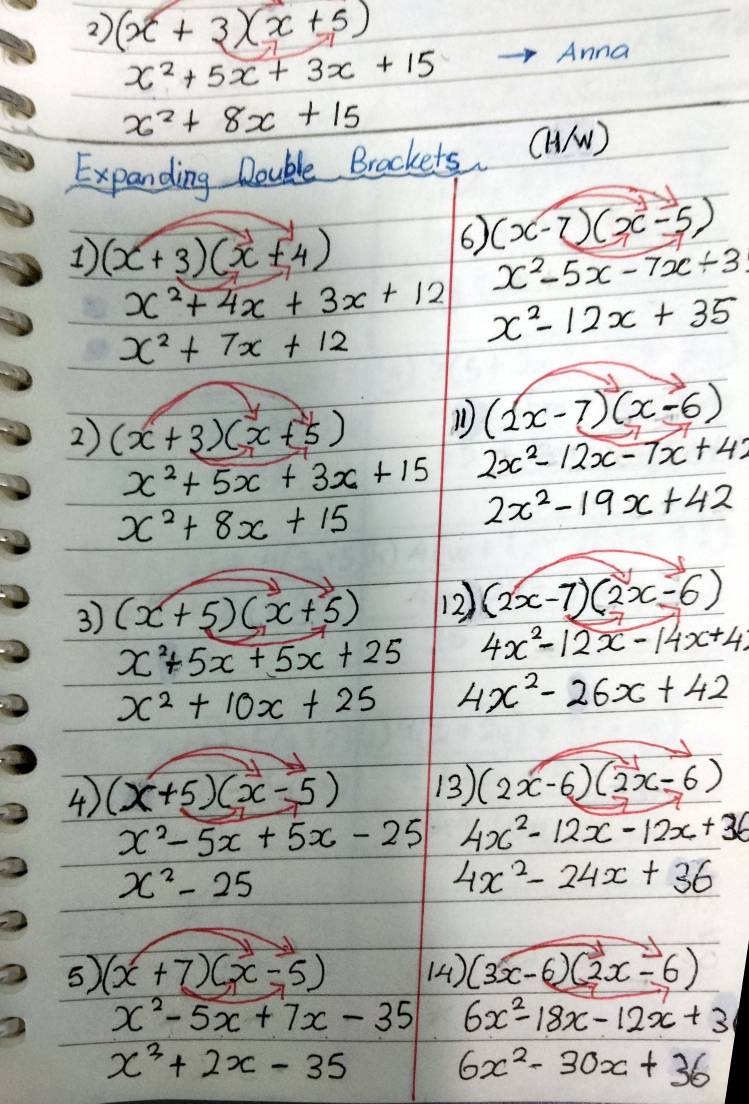 2)(x + 3)(x + 5)
x² + 5x + 3x + 15 → Anna
x² + 8x + 15
Expanding Double Brackets (H/W)
1)(x + 3)(x + 4)
x² + 4x + 3x + 12
x² + 7x + 12
2)(x + 3)(x + 5)
x² + 5x + 3x + 15
x² + 8x + 15
3)(x + 5)(x + 5)
x² + 5x + 5x + 25
x² + 10x + 25
4)(x + 5)(x - 5)
x² - 5x + 5x - 25
x² - 25
5)(x + 7)(x - 5)
x² - 5x + 7x - 35
x² + 2x - 35
6)(x - 7)(x - 5)
x² - 5x - 7x + 3
x² - 12x + 35
11)(2x - 7)(x - 6)
2x² - 12x - 7x + 42
2x² - 19x + 42
12)(2x - 7)(2x - 6)
4x² - 12x - 14x + 4
4x² - 26x + 42
13)(2x - 6)(2x - 6)
4x² - 12x - 12x + 36
4x² - 24x + 36
14)(3x - 6)(2x - 6)
6x² - 18x - 12x + 3
6x² - 30x + 36